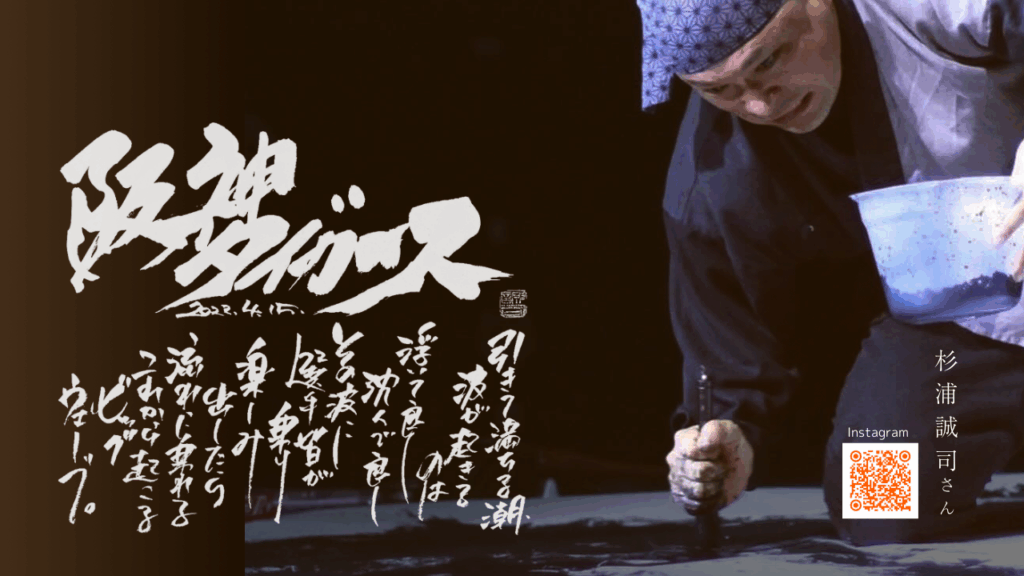 阪神タイガース
2022.4.15.
引きて満ちる潮
波が起きる
のは
浮て良し
沈んで良し
その波に
選手皆が
乗り
楽しみ
出したら
流れに乗れる
これから起こる
ビッグ
ウェーブ。
杉浦誠司さん
Instagram